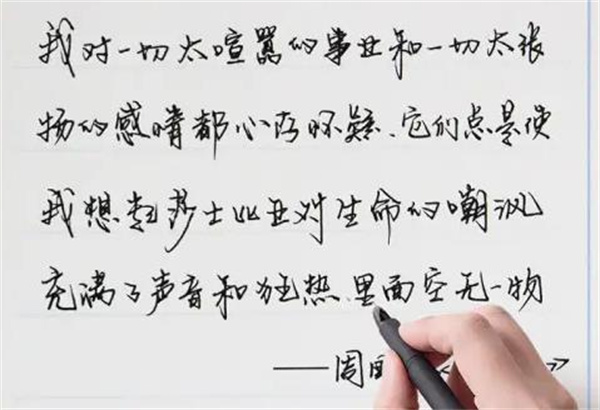 我对一切太喧嚣的事业和一切太张
扬的感情都心存怀疑、它们总是使
我想起莎士比亚对生命的嘲讽
充满了声音和狂热、里面空无一物
——周